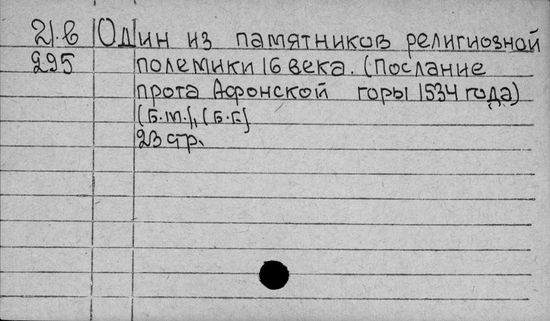 21.в Один из памятников религиозной
295 полемики 16 века. (Послание
прота Афонской горы 1534 года)
(б.м.), (б.г.)
23 стр.